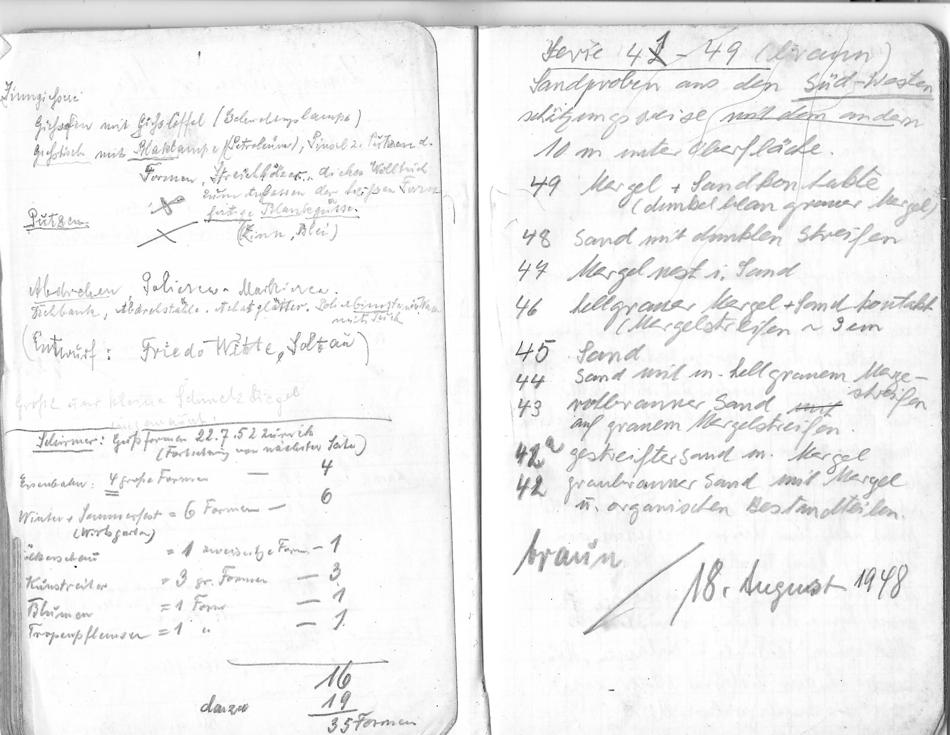 Zinngießerei
Gießofen mit Gießlöffel (
Gießtisch mit Blaklampe (Petroleum), Pinsel z.
Formen, Streichhölzer, dickes Wolltuch
zum Anfassen der heißen Form
Putzen.
(Zinn, Blei)
Abdrehen Polieren Markieren.
Drehbank, Abdrehstähle.
mit Tuch
(Entwurf: Friedo Witte, Soltau)
Große und kleine Schmelztiegel
Schirmer: Großformen 22.7.52 zurück
(Fortsetzung von nächster Seite)
Eisenbahn: 4 große Formen — 4
Winter + Sommerfest = 6 Formen — 6
(Wirtsgarten)
= 1 zweiseitige Form — 1
Kunstreiter = 3 gr. Formen — 3
Blumen = 1 Form — 1
Tropenpflanzen = 1 " — 1
16
dazu 19
35 Formen
Serie 41 - 49 (braun)
Sandproben aus dem Süd-Westen
schätzungsweise mit dem andern
10 m unter Oberfläche.
49 Mergel + Sandkontakte
(dunkelblau grauer Mergel)
48 Sand mit dunklen Streifen
47 Mergelnest i. Sand
46 hellgrauer Mergel + Sand kontakt
(Mergelstreifen ~ 3 cm
45 Sand
44 Sand mit hellgrauem Mergel-
streifen
43 rotbrauner Sand mit
auf grauem Mergelstreifen.
42a gestreifter Sand m. Mergel
42 graubrauner Sand mit Mergel
u. organischen Bestandteilen.
braun
18. August 1948